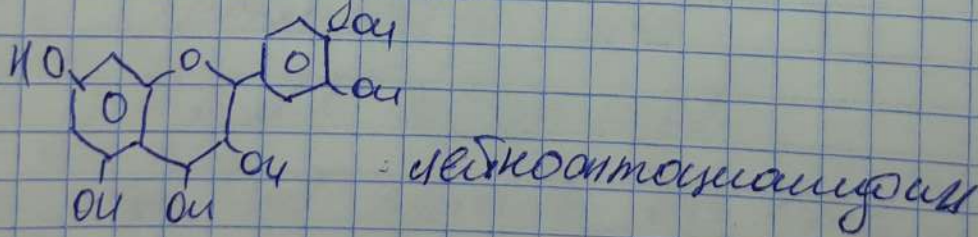 OH
HO O OH
OH
OH OH
: лейкоантоцианидин